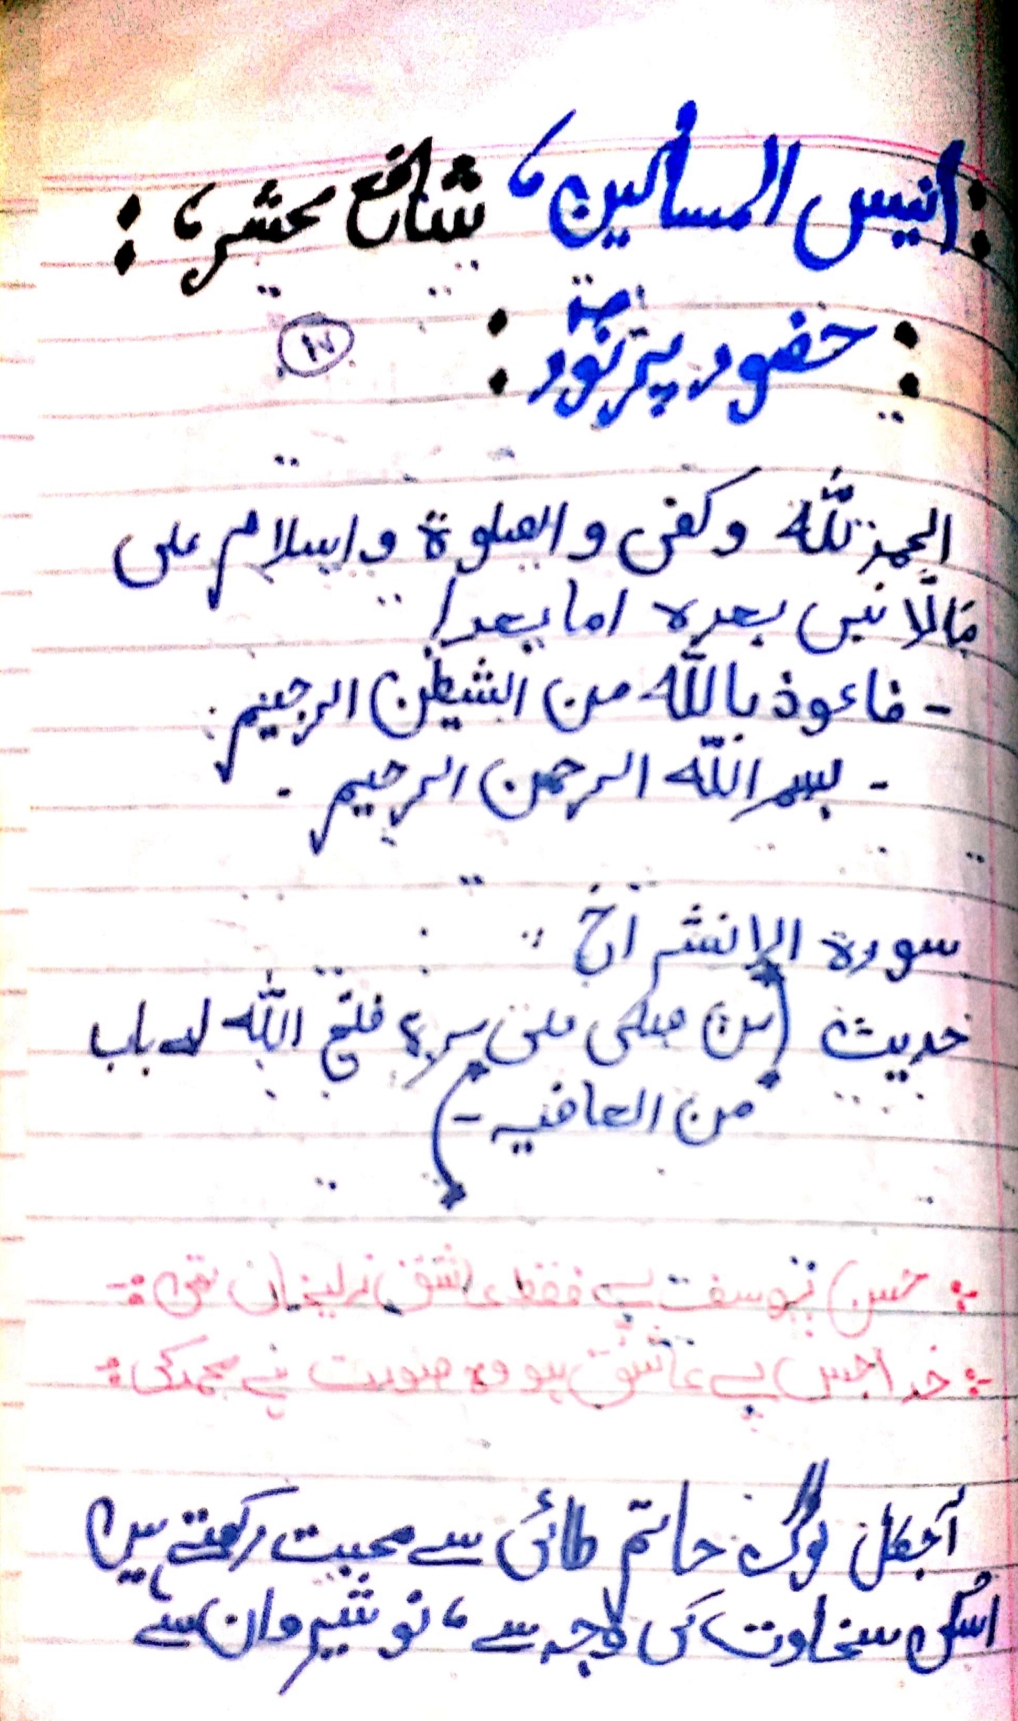 : انیس المساکین، شافع محشر، :
: حضور پرنورؐ : ١٧
الحمد للّٰہ وکفی والصلوة واسلام علی
مالّا نبی بعدہ اما بعد!
- فاعوذ باللّٰہ من الشیطٰن الرجیم.
- بسم اللّٰہ الرحمن الرحیم -
سورة الانشراح
حدیث (من صلی علی مرة فتح اللّٰہ لہ باب
من العافیہ -)
حسن یوسف پے فقط عاشق زلیخاں تھی :-
خدا جس پے عاشق ہو وہ صورت ہے محمد کی :
آجکل لوگ حاتم طائی سے محبت رکھتے ہیں
اسکی سخاوت کی وجہ سے، نوشیروان سے